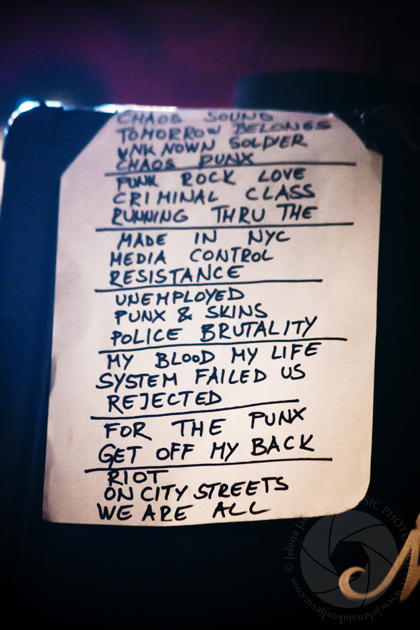 CHAOS SOUND
TOMORROW BELONGS
UNKNOWN SOLDIER
CHAOS PUNX
PUNK ROCK LOVE
CRIMINAL CLASS
RUNNING THRU THE
MADE IN NYC
MEDIA CONTROL
RESISTANCE
UNEMPLOYED
PUNX & SKINS
POLICE BRUTALITY
MY BLOOD MY LIFE
SYSTEM FAILED US
REJECTED
FOR THE PUNX
GET OFF MY BACK
RIOT
ON CITY STREETS
WE ARE ALL